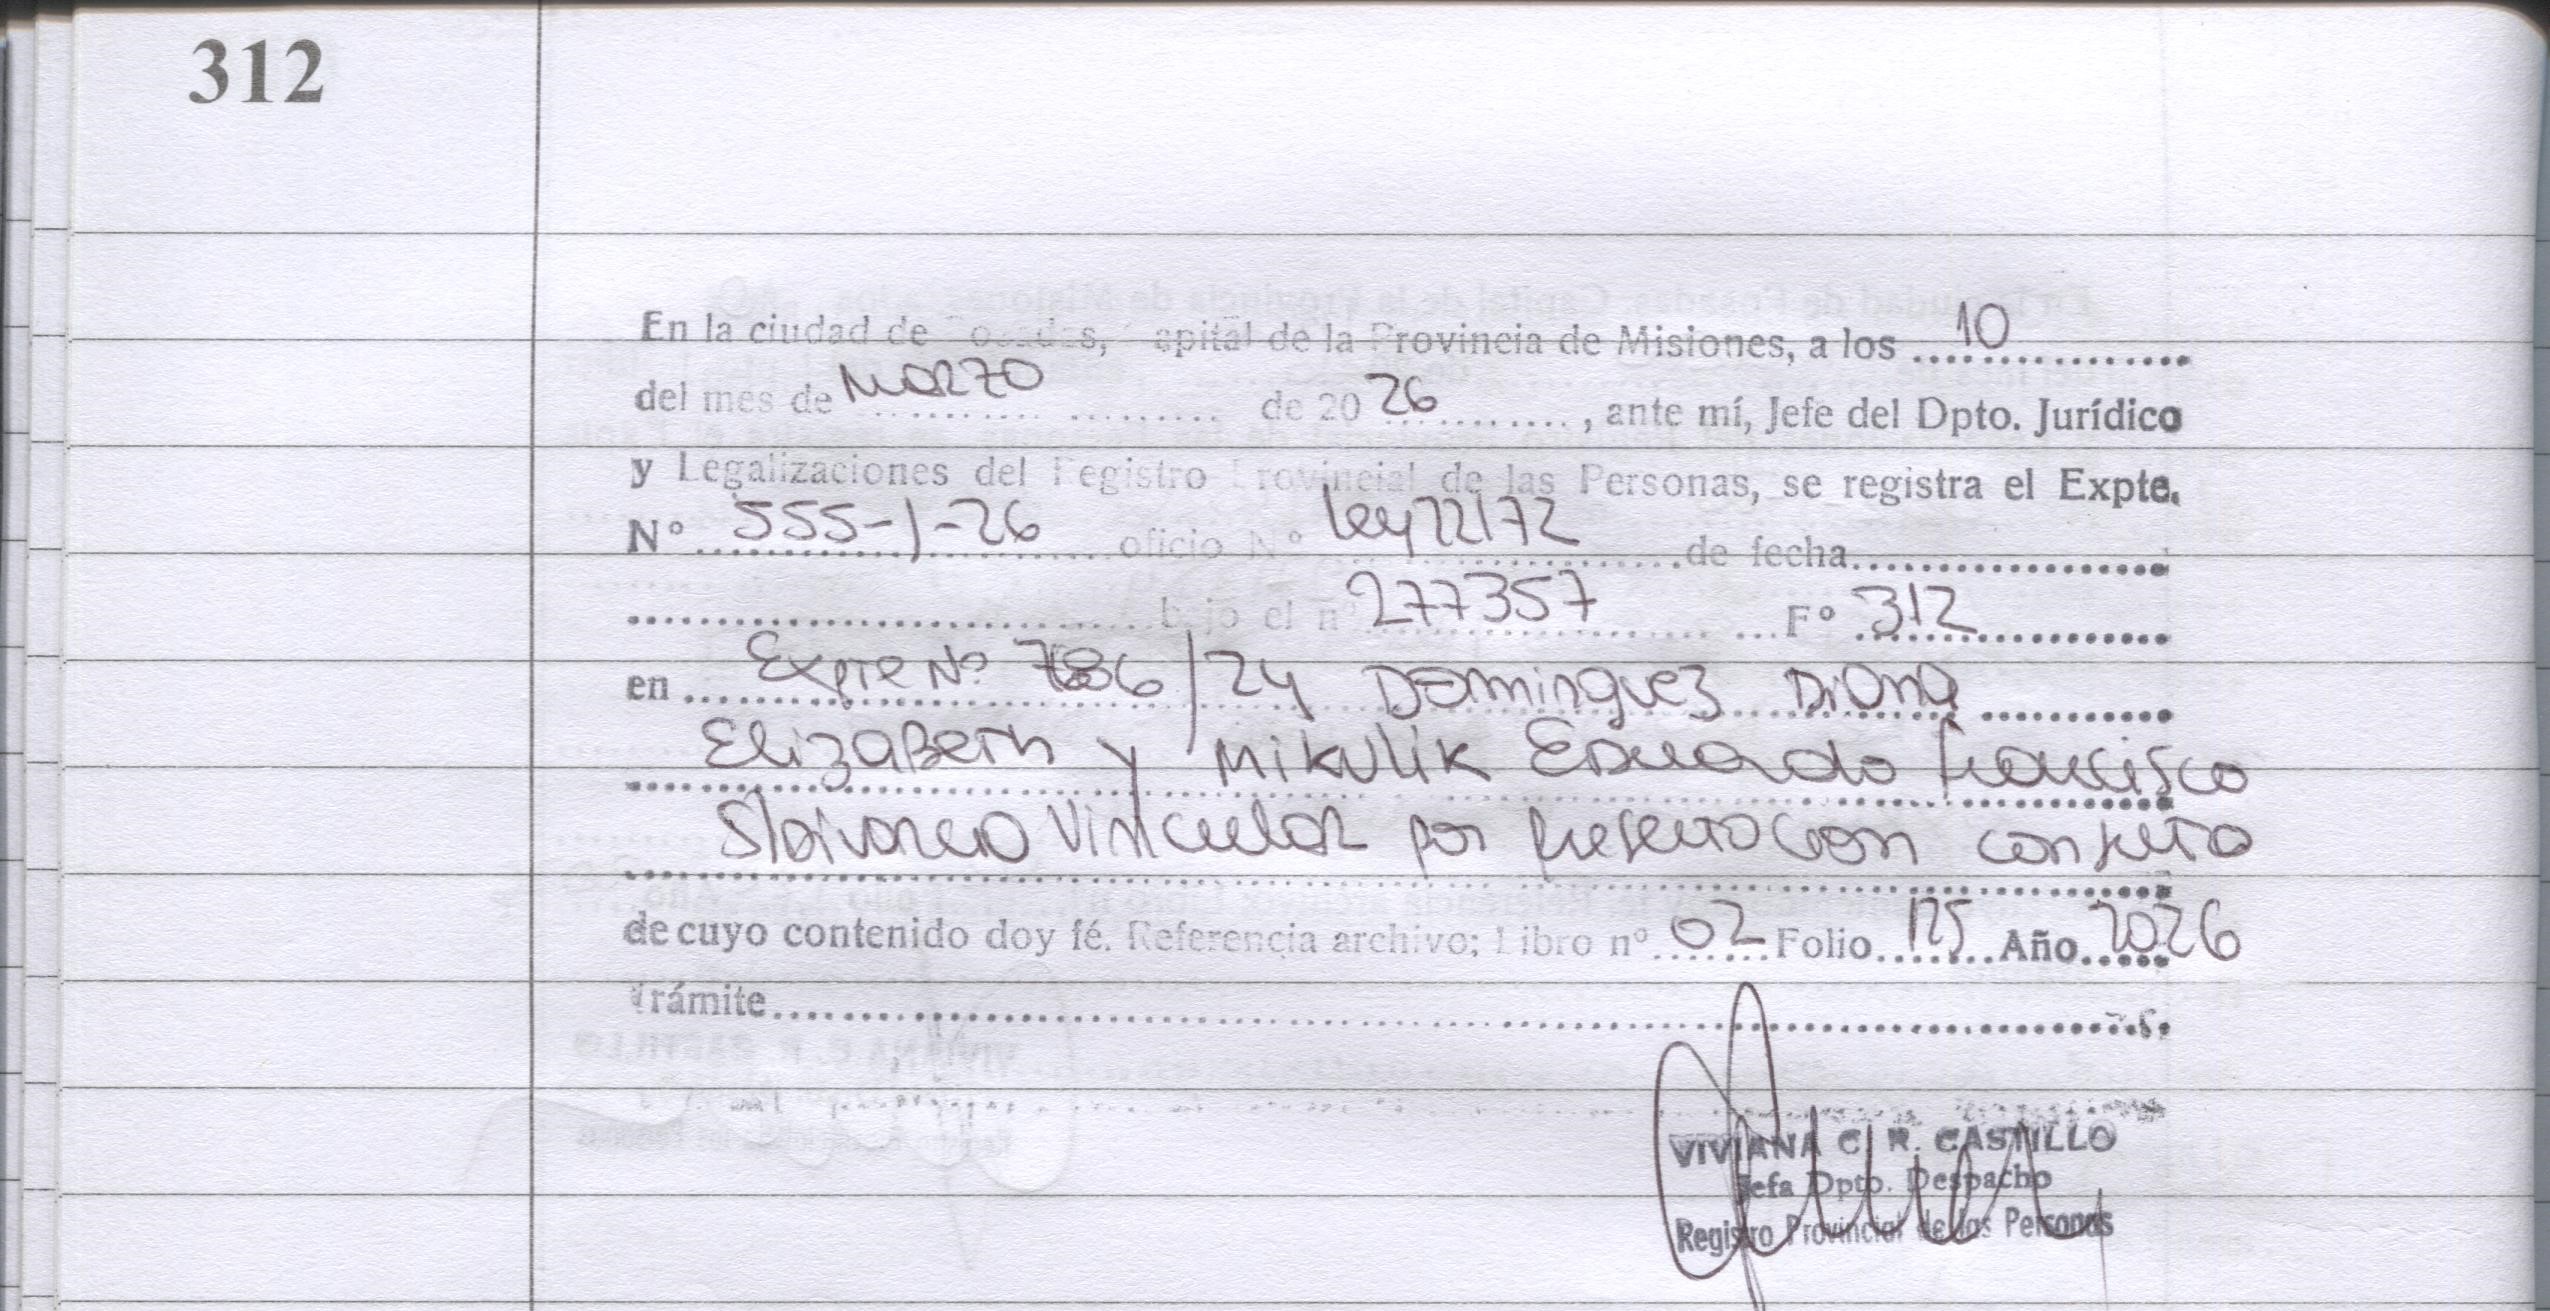 312
En la ciudad de Posadas, Capital de la Provincia de Misiones, a los 10
del mes de Marzo de 20 26, ante mí, Jefe del Dpto. Jurídico
y Legalizaciones del Registro Provincial de las Personas, se registra el Expte.
Nº 555-1-26 oficio Nº Ley 22172 de fecha
bajo el nº 277357 Fº 312
en Expte Nº /24 Dominguez Diana
Elizabeth y Mikulik Eduardo Francisco
S/Divorcio Vincular por Presentacion conjunta
de cuyo contenido doy fé. Referencia archivo: Libro nº 02 Folio 125 Año 2026
Trámite
VIVIANA C. R. CASTILLO
Jefa Dpto. Despacho
Registro Provincial de las Personas